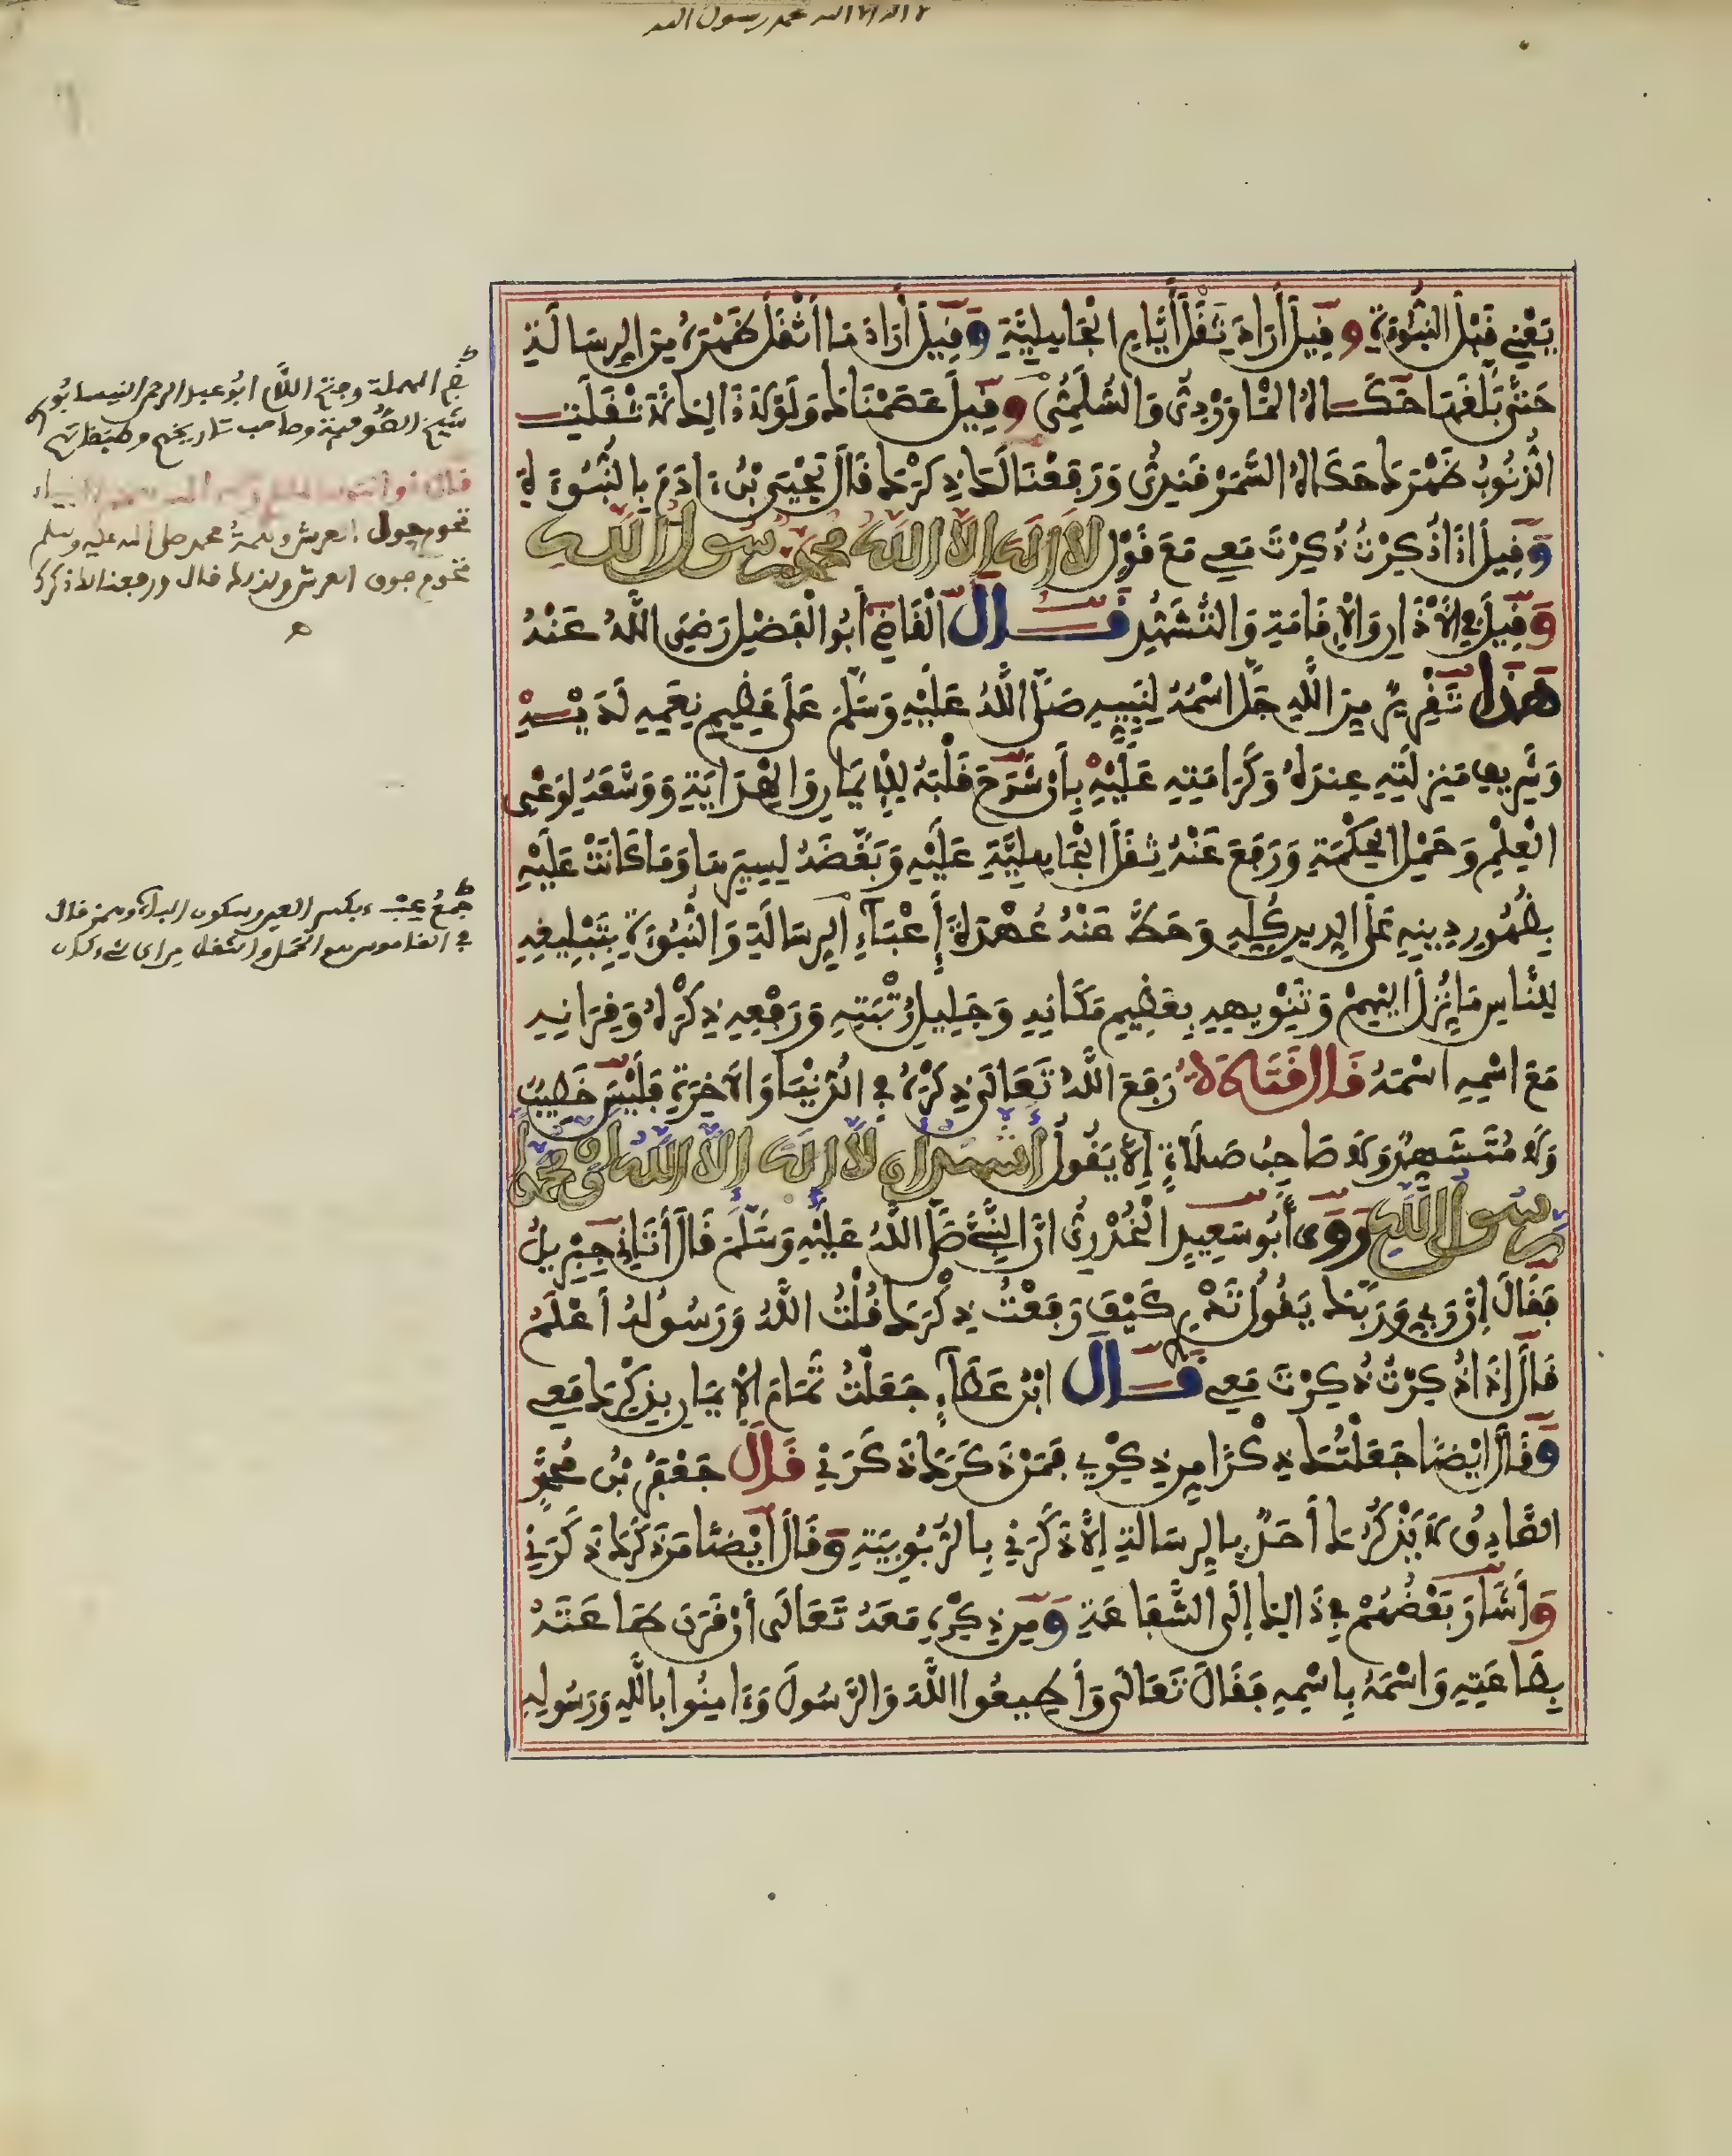 لا اله الا الله محمد رسول الله
يَعْنِي قَبْلَ النُّبُوءَةِ وَقِيلَ أَرَادَ ثِقَلَ أَيَّامِ الْجَاهِلِيَّةِ وَقِيلَ أَرَادَ مَا أَثْقَلَ ظَهْرَهُ مِنَ الرِّسَالَةِ
حَتَّى بَلَّغَهَا حَكَاهُ الْمَاوَرْدِيُّ وَالسُّلَمِيُّ وَقِيلَ عَصَمْنَاكَ وَلَوْلَا ذَالِكَ لَأَثْقَلَتْ
الذُّنُوبُ ظَهْرَكَ حَكَاهُ السَّمَرْقَنْدِيُّ وَرَفَعْنَا لَكَ ذِكْرَكَ قَالَ يَحْيَى بْنُ ءَادَمَ بِالنُّبُوءَةِ
وَقِيلَ اِذَا ذُكِرْتُ ذُكِرْتَ مَعِي مَعَ قَوْلِ لَا إِلَهَ إِلَّا اللَّهُ مُحَمَّدٌ رَسُولُ اللَّهِ
وَقِيلَ فِي الْأَذَانِ وَالْإِقَامَةِ وَالتَّشَهُّدِ قَالَ الْقَاضِي أَبُو الْفَضْلِ رَضِيَ اللَّهُ عَنْهُ
هَذَا تَقْرِيرٌ مِنَ اللَّهِ جَلَّ اسْمُهُ لِنَبِيِّهِ صَلَّى اللَّهُ عَلَيْهِ وَسَلَّمَ عَلَى عَظِيمِ نِعَمِهِ لَدَيْهِ
وَشَرِيفِ مَنْزِلَتِهِ عِنْدَهُ وَكَرَامَتِهِ عَلَيْهِ بِأَنْ شَرَحَ قَلْبَهُ لِلْإِيمَانِ وَالْهِدَايَةِ وَوَسَّعَهُ لِوَعْيِ
الْعِلْمِ وَحَمْلِ الْحِكْمَةِ وَرَفَعَ عَنْهُ ثِقَلَ الْجَاهِلِيَّةِ عَلَيْهِ وَبَغَّضَهُ لِسِيَرِهَا وَمَا كَانَتْ عَلَيْهِ
بِظُهُورِ دِينِهِ عَلَى الدِّينِ كُلِّهِ وَحَطَّ عَنْهُ عُهْدَةَ أَعْبَاءِ الرِّسَالَةِ وَالنُّبُوءَةِ بِتَبْلِيغِهِ
لِلنَّاسِ مَا نُزِّلَ إِلَيْهِمْ وَتَنْوِيهِهِ بِعَظِيمِ مَكَانِهِ وَجَلِيلِ رُتْبَتِهِ وَرَفْعِهِ ذِكْرَهُ وَقِرَانِهِ
مَعَ اسْمِهِ اسْمَهُ قَالَ قَتَادَةُ رَفَعَ اللَّهُ تَعَالَى ذِكْرَهُ فِي الدُّنْيَا وَالْآخِرَةِ فَلَيْسَ خَطِيبٌ
وَلَا مُتَشَهِّدٌ وَلَا صَاحِبُ صَلَاةٍ إِلَّا يَقُولُ أَشْهَدُ أَنْ لَا إِلَهَ إِلَّا اللَّهُ وَأَنَّ مُحَمَّدًا
رَسُولُ اللَّهِ وَرَوَى أَبُو سَعِيدٍ الْخُدْرِيُّ اَنَّ النَّبِيَّ صَلَّى اللَّهُ عَلَيْهِ وَسَلَّمَ قَالَ أَتَانِي جِبْرِيلُ
فَقَالَ إِنَّ رَبِّي وَرَبَّكَ يَقُولُ تَدْرِي كَيْفَ رَفَعْتُ ذِكْرَكَ قُلْتُ اللَّهُ وَرَسُولُهُ أَعْلَمُ
قَالَ إِذَا ذُكِرْتُ ذُكِرْتَ مَعِي قَالَ ابْنُ عَطَاءٍ جَعَلْتُ تَمَامَ الْإِيمَانِ بِذِكْرِكَ مَعِي
وَقَالَ أَيْضًا جَعَلْتُكَ ذِكْرًا مِنْ ذِكْرِي فَمَنْ ذَكَرَكَ ذَكَرَنِي قَالَ جَعْفَرُ بْنُ مُحَمَّدٍ
الصَّادِقُ لَا يَذْكُرُكَ أَحَدٌ بِالرِّسَالَةِ إِلَّا ذَكَرَنِي بِالرُّبُوبِيَّةِ وَقَالَ أَيْضًا مَنْ ذَكَرَكَ ذَكَرَنِي
وَأَشَارَ بَعْضُهُمْ فِي ذَالِكَ إِلَى الشَّفَاعَةِ وَمِنْ ذِكْرِهِ مَعَهُ تَعَالَى أَنْ قَرَنَ طَاعَتَهُ
بِطَاعَتِهِ وَاسْمَهُ بِاسْمِهِ فَقَالَ تَعَالَى وَأَطِيعُوا اللَّهَ وَالرَّسُولَ وَءَامِنُوا بِاللَّهِ وَرَسُولِهِ
بضم المهملة وفتح اللام ابو عبد الرحمن النيسابوري
شيخ الصوفية وصاحب تاريخهم وطبقاتهم
العرش وسمة محمد صلى الله عليه وسلم
العرش ولذلك قال ورفعنا لك ذكرك
جمع عبء بكسر العين وسكون الباء وهمز قال
في القاموس هو الحمل والثقل من اي شيء كان